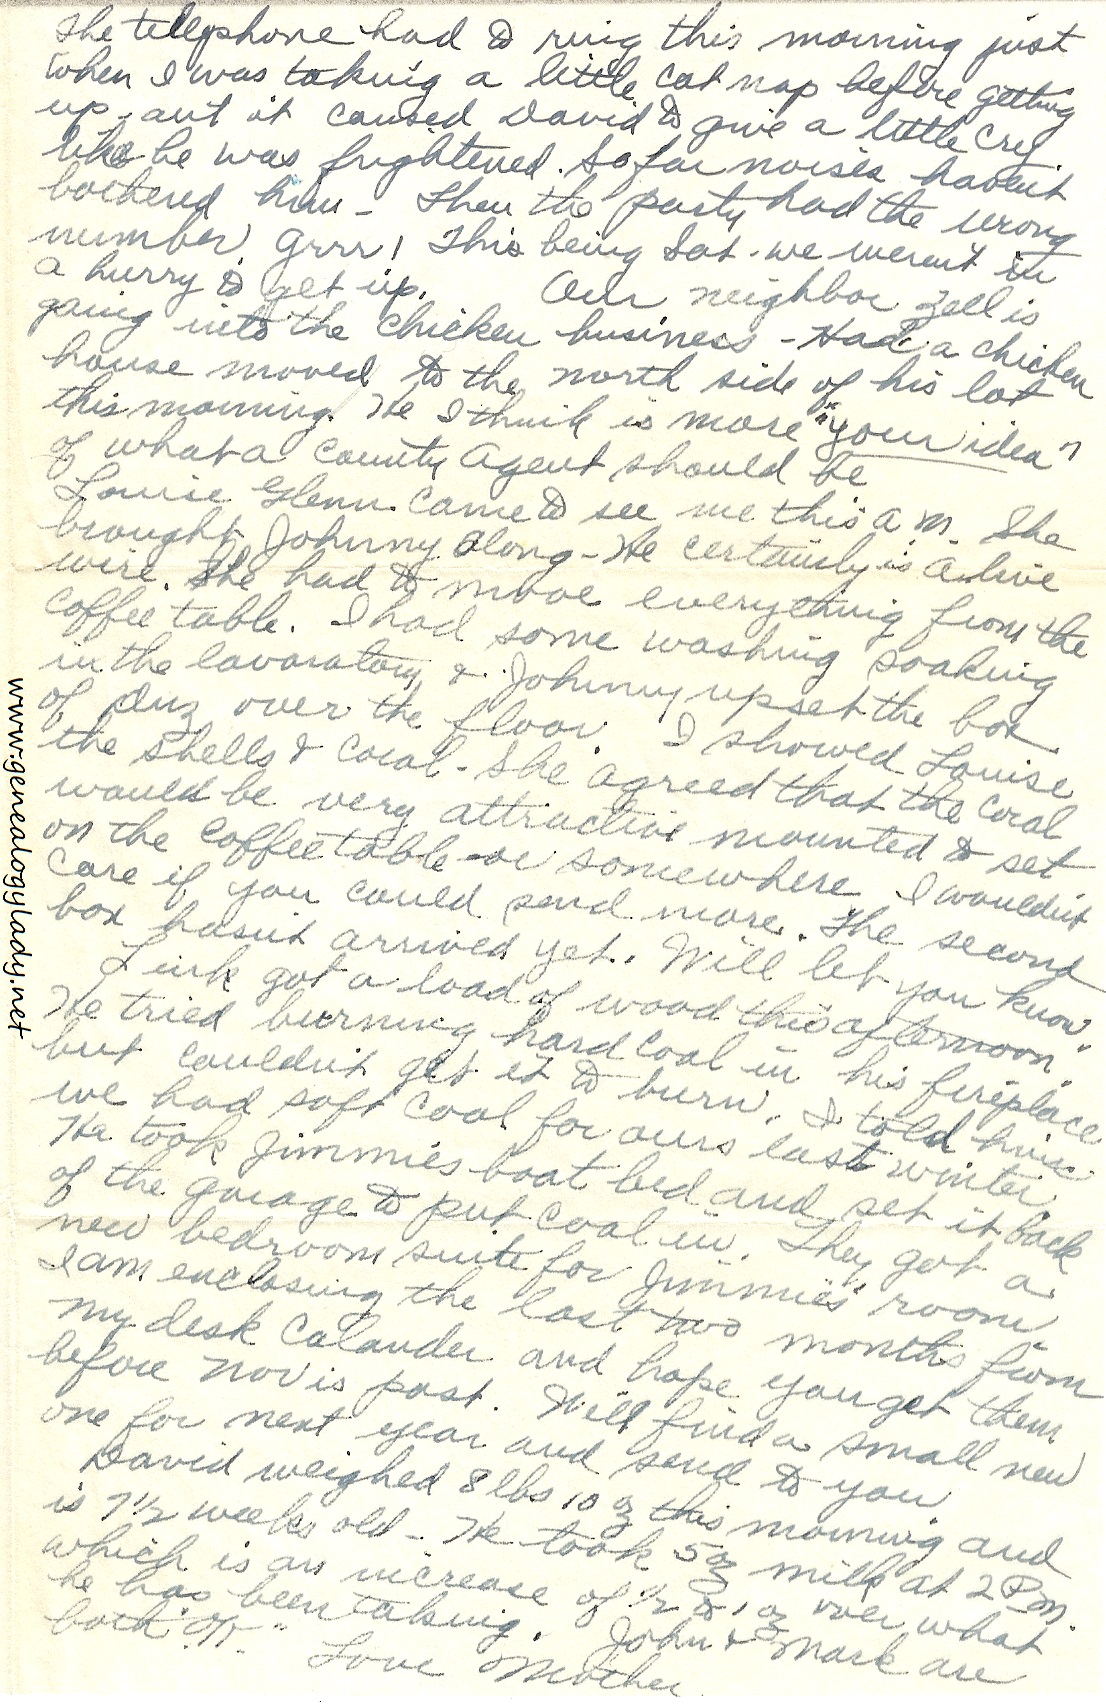 The telephone had to ring this morning just
when I was taking a little cat nap before getting
up, ant it caused David to give a little cry
like he was frightened. So far noises haven't
bothered him - Then the party had the wrong
number. Grrr! This being Sat. we weren't in
a hurry to get up. Our neighbor Zell is
going into the chicken business - Had a chicken
house moved to the north side of his lot
this morning. He I think is more "your idea"
of what a County Agent should be
Louise Glenn came to see me this a m. She
brought Johnny along - He certainly is a live
wire. She had to move everything from the
coffee table. I had some washing soaking
in the lavaratory & Johnny upset the box
of Duz over the floor. I showed Louise
the shells & coral - She agreed that the coral
would be very attractive mounted & set
on the coffee table or somewhere. I wouldn't
care if you could send more. The second
box hasn't arrived yet. Will let you know.
Link got a load of wood this afternoon.
He tried burning hard coal in his fireplace
but couldn't get it to burn. I told him
we had soft coal for ours last winter.
He took Jimmies boat bed and set it back
of the garage to put coal in. They got a
new bedroom suite for Jimmies' room.
I am enclosing the last two months from
my desk calander and hope you get them
before Nov is past. Will find a small new
one for next year and send to you
David weighed 8 lbs 10 oz this morning and
is 7 1/2 weeks old - He took 5 oz milk at 2 P.m.
which is an increase of 1/2 to 1 oz over what
he has been taking. John & Mark are
both
Love Mother
www.genealogylady.net